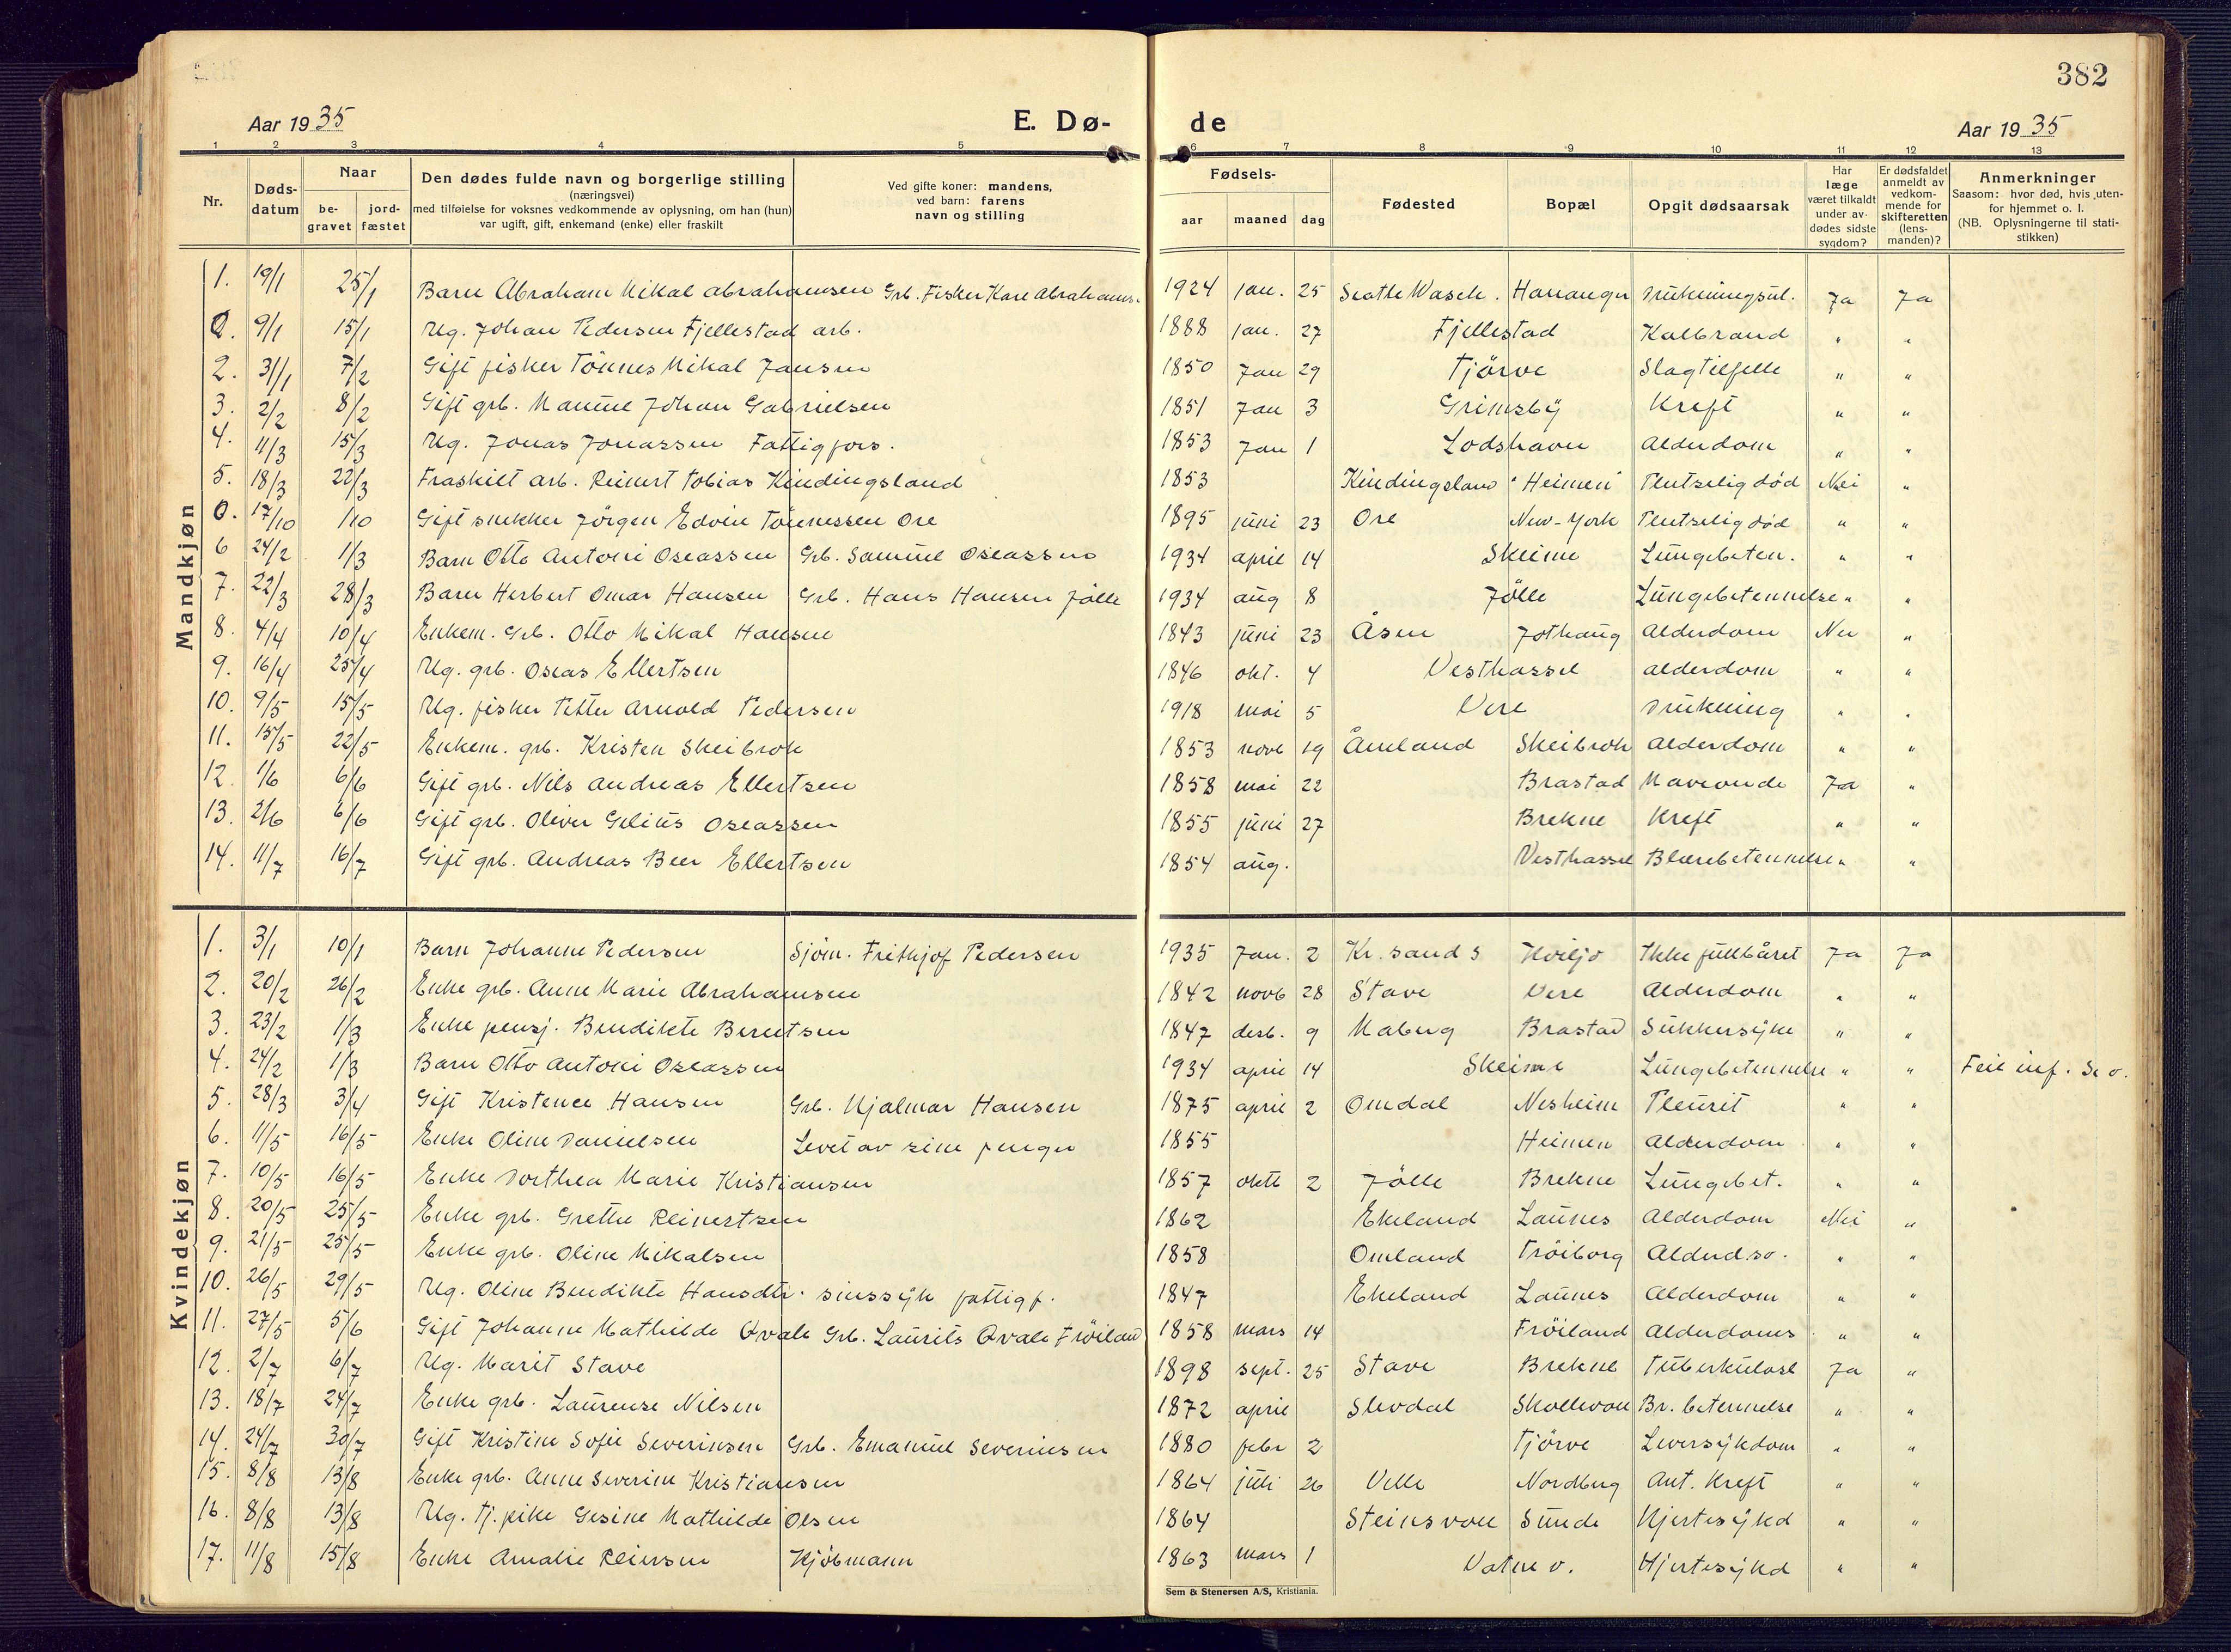 382
Aar 1935
E. Dø-
de
Aar 1935
1 2 3 4 5 6 7 8 9 10 11 12 13
Nr.
Døds-
datum
Naar
be-
gravet
jord-
fæstet
Den dødes fulde navn og borgerlige stilling
(næringsvei)
med tilføielse for voksnes vedkommende av oplysning, om han (hun)
var ugift, gift, enkemand (enke) eller fraskilt
Ved gifte koner: mandens,
ved barn: farens
navn og stilling
Fødsels-
aar maaned dag
Fødested
Bopæl
Opgit dødsaarsak
Har
læge
været tilkaldt
under av-
dødes sidste
sygdom?
Er dødsfaldet
anmeldt av
vedkom-
mende for
skifteretten
(lens-
manden)?
Anmerkninger
Saasom: hvor død, hvis uten-
for hjemmet o. l.
(NB. Oplysningerne til stati-
stikken)
Mandkjøn
1. 19/1 25/1 Barn Abraham Mikal Abrahamsen Grb. Fisker Kare Abrahams. 1924 jan. 25 Seattle Wasch. Ja Ja
0. 9/1 15/1 Ug. Johan Pedersen Fjellestad arb. 1888 jan. 27 Fjellestad Kalbrand " "
2. 31/1 7/2 Gift fisker Tönnes Mikal Jansen 1850 Jan 29 Tjörve Slagtilfelle " "
3. 2/2 8/2 Gift grb. Manuel Johan Gabrielsen 1851 Jan 3 Grimsby Kreft " "
4. 11/3 15/3 Ug. Jonas Jonassen Fattigfors. 1853 Jan 1 Lodshavn Alderdom " "
5. 18/3 22/3 Fraskilt arb. Reinert Tobias Kindingsland 1853 Kindingsland "Heimen" Plutselig död Nei "
0. 17/10 1/10 Gift snekker Jörgen Edvin Tönnessen Ore 1895 juni 23 Ore New-York Plutselig död " "
6 24/2 1/3 Barn Otto Antoni Oseassen Grb. Samuel Oseassen 1934 april 14 Skeime Lungebeten. " "
7. 22/3 28/3 Barn Herbert Omar Hansen Grb. Hans Hansen Jölle 1934 aug 8 Jölle Lungebetennelse " "
8. 4/4 10/4 Enkem. Grb. Otto Mikal Hansen 1843 juni 23 Åsen Jothaug Alderdom Nei "
9. 16/4 25/4 Ug. grb. Oseas Ellertsen 1846 okt. 4 Vesthassel alderdom " "
10. 9/5 15/5 Ug. fisker Petter Arnold Pedersen 1918 mai 5 Vere Drukning " "
11. 15/5 22/5 Enkem. grb. Kristen Skeibrok 1853 nove 19 Åmeland Skeibrok Alderdom " "
12. 1/6 6/6 Gift grb. Nils Andreas Ellertsen 1858 mai 22 Brastad Maveonde Ja "
13. 2/6 6/6 Gift grb. Oliver Gelius Oseassen 1855 juni 27 Brekne Kreft " "
14. 11/7 16/7 Gift grb. Andreas Beer Ellertsen 1854 aug. Vesthassel Blærebetennelse " "
Kvindekjøn
1. 3/1 10/1 Barn Johanne Pedersen Sjöm. Frithjof Pedersen 1935 Jan. 2 Kr.sand S Kviljo Ikke fullbåret Ja Ja
2. 20/2 26/2 Enke grb. Anne Marie Abrahamsen 1842 novb 28 Stave Vere Alderdom " "
3. 23/2 1/3 Enke pensj. Bendikte Berentsen 1847 desb. 9 Maberg Brastad Sukkersyke " "
4. 24/2 1/3 Barn Otto Antoni Oseassen 1934 april 14 Skeime Lungebetennelse " " Feil inf. Se o.
5. 28/3 3/4 Gift Kristence Hansen Grb. Hjalmar Hansen 1875 april 2 Omdal Nesheim Pleurit " "
6. 11/5 16/5 Enke Oline Danielsen Levet av sine penger 1855 Heimen Alderdom " "
7. 10/5 16/5 Enke Dorthea Marie Kristiansen 1857 oktb 2 Jölle Brekne Lungebet. " "
8. 20/5 25/5 Enke grb. Grethe Reinertsen 1862 Ekeland Launes Alderdom Nei "
9. 21/5 25/5 Enke grb. Oline Mikalsen 1858 Omland Tröiborg " "
10. 26/5 29/5 Ug. Oline Bendikte Hansdtr. sinssyk fattigf. 1847 Ekeland Launes Alderdom " "
11. 27/5 5/6 Gift Johanne Mathilde Qvale Grb. Laurits Qvale Fröiland 1858 mars 14 Fröiland Alderdoms " "
12. 2/7 6/7 Ug. Marit Stave 1898 sept. 25 Stave Brekne Tuberkulose Ja "
13. 18/7 24/7 Enke grb. Laurense Nilsen 1872 april Slevdal Skollevoll Br. betennelse " "
14. 24/7 30/7 Gift Kristine Sofie Severinsen Grb. Emanuel Severinsen 1880 febr 2 Tjörve Leversykdom " "
15. 8/8 13/8 Enke grb. Anne Severine Kristiansen 1864 juli 26 Velle Nordberg Ant. Kreft " "
16. 8/8 13/8 Ug. Tj.pike Gesine Mathilde Olsen 1864 Steinsvoll Sunde Hjertesykd " "
17. 11/8 15/8 Enke Amalie Reiersen Kjöbmann 1863 mars 1 Vatne v. Hjertesykd " "
Sem & Stenersen A/S, Kristiania.